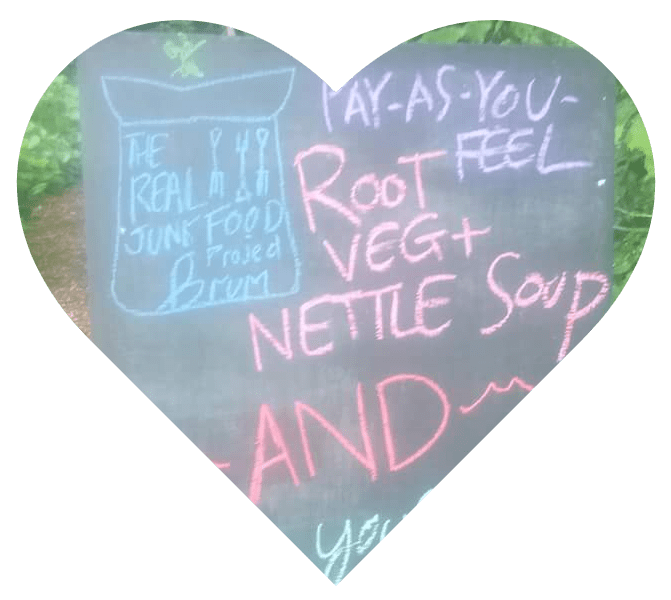 THE
REAL
JUNK FOOD
Project
Brum
PAY-AS-YOU-
FEEL
ROOT
VEG +
NETTLE SOUP
-AND~